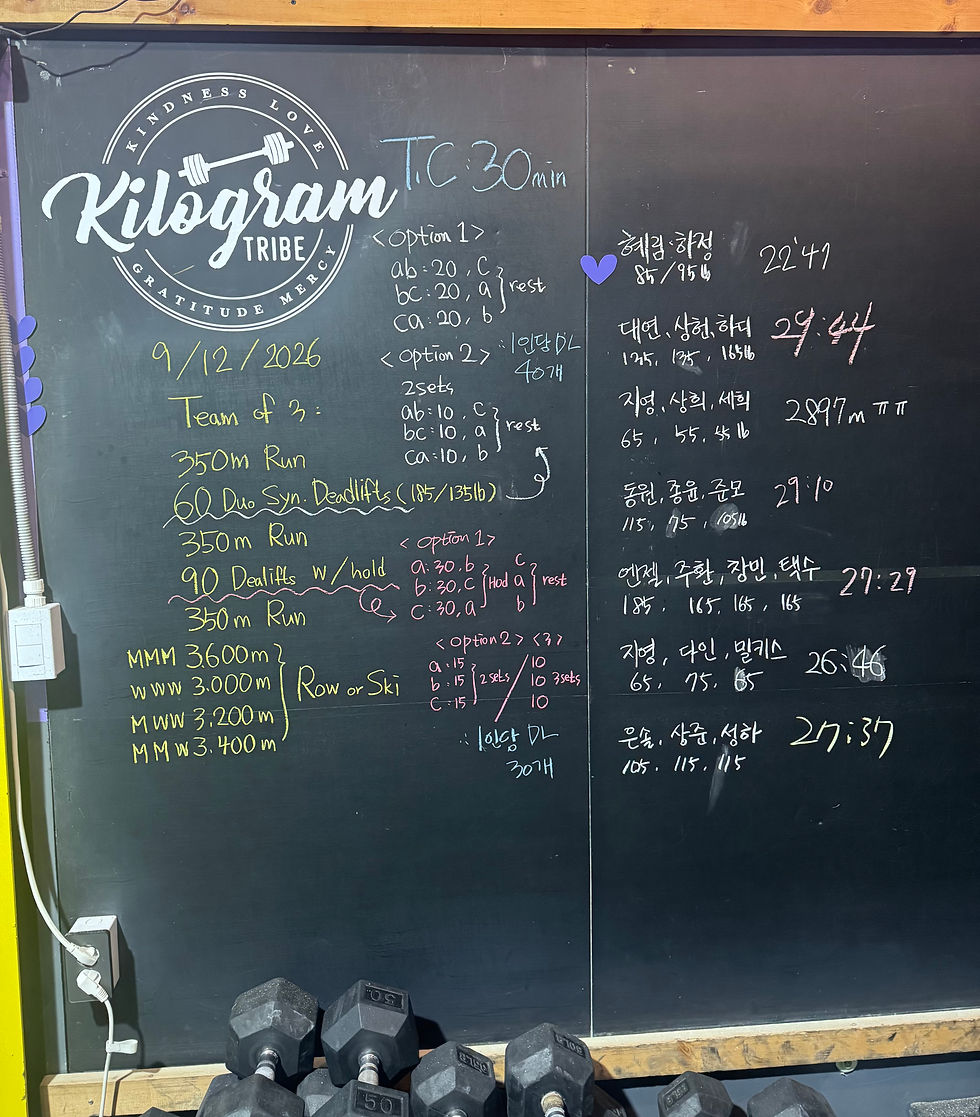 KINDNESS LOVE
Kilogram
TRIBE
GRATITUDE MERCY
T.C:30min
9/12/2026
Team of 3:
350m Run
60 Duo Syn. Deadlifts (185/135lb)
350m Run
90 Dealifts w/hold
350m Run
MMM 3.600m
WWW 3.000m
MWW 3.200m
MMW 3.400m
Row or Ski
<option 1>
ab:20, c
bc:20, a
ca:20, b
rest
<option 2>
2sets
ab:10, c
bc:10, a
ca:10, b
rest
∴ 1인당 DL
40개
<option 1>
a:30. b
b:30, c
c:30, a
Hod
c
a
b
rest
<option 2> <3>
a:15
b:15
c:15
2sets
10
10
10
3sets
∴ 1인당 DL
30개
혜림·하정
85/95lb
22'47
대연, 상헌, 하더
135, 135, 165lb
29:44
지영, 상희, 세희
65, 55, 55lb
2897m ㅠㅠ
동원, 종윤, 준모
115, 75, 105lb
29:10
엔젤, 주환, 장민, 택수
185. 165, 165, 165
27:29
지영, 다인, 밀키스
65. 75. 65
26:46
은솔, 상준, 성하
105. 115, 115
27:37
50
50